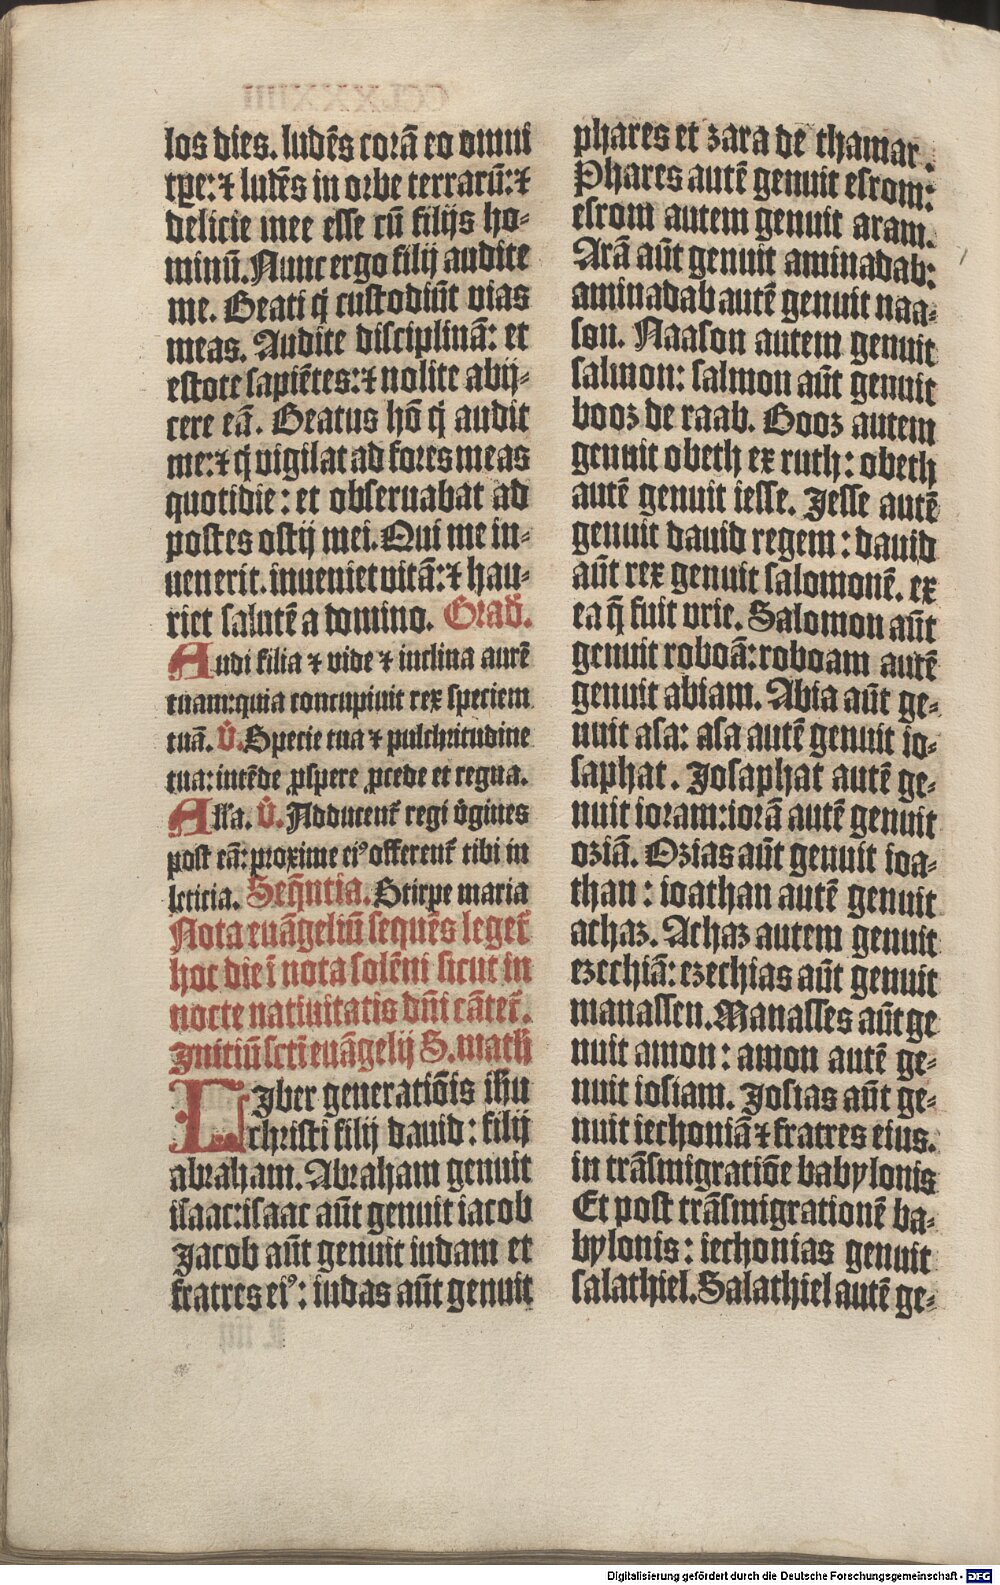 los dies. ludēs corā eo omni
tꝑe: ⁊ ludēs in orbe terrarū: ⁊
delicie mee esse cū filijs ho⸗
minū. Nunc ergo filij audite
me. Beati q̇ custodiūt vias
meas. Audite disciplinā: et
estote sapiētes: ⁊ nolite abij⸗
cere eā. Beatus hō q̇ audit
me: ⁊ q̇ vigilat ad fores meas
quotidie: et obseruabat ad
postes ostij mei. Qui me in⸗
uenerit. inueniet vitā: ⁊ hau⸗
riet salutē a domino. Grad̄.
Audi filia ⁊ vide ⁊ inclina aurē
tuam: quia concupiuit rex speciem
tuā. V̇. Specie tua ⁊ pulchritudine
tua: intēde ꝓspere ꝓcede et regna.
Alla. V̇. Adducent̄ regi v̇gines
post eā: proxime eiꝰ offerent̄ tibi in
leticia. Seq̄ntia. Stirpe maria
Nota euāgeliū sequēs leget̄
hoc die ī nota solēni sicut in
nocte natiuitatis dn̄i cātet̄.
Initiū scti euāgelij S. math̄
LIber generatiōis ih̄u
christi filij dauid: filij
abraham. Abraham genuit
isaac: isaac aūt genuit iacob
Jacob aūt genuit iudam et
fratres eiꝰ: iudas aūt genuit
phares et zara de thamar.
Phares autē genuit esrom:
esrom autem genuit aram.
Arā aūt genuit aminadab:
aminadab autē genuit naa⸗
son. Naason autem genuit
salmon: salmon aūt genuit
booz de raab. Booz autem
genuit obeth ex ruth: obeth
autē genuit iesse. Jesse autē
genuit dauid regem: dauid
aūt rex genuit salomonē. ex
ea q̄ fuit vrie. Salomon aūt
genuit roboā: roboam autē
genuit abiam. Abia aūt ge⸗
nuit asa: asa autē genuit io⸗
saphat. Josaphat autē ge⸗
nuit ioram: iorā autē genuit
oziā. Ozias aūt genuit ioa⸗
than: ioathan autē genuit
achaz. Achaz autem genuit
ezechiā: ezechias aūt genuit
manassen. Manasses aūt ge
nuit amon: amon autē ge⸗
nuit iosiam. Josias aūt ge⸗
nuit iechoniā ⁊ fratres eius.
in trāsmigratiōe babylonis
Et post trāsmigrationē ba⸗
bylonis: iechonias genuit
salathiel. Salathiel autē ge⸗
Digitalisierung gefördert durch die Deutsche Forschungsgemeinschaft - DFG